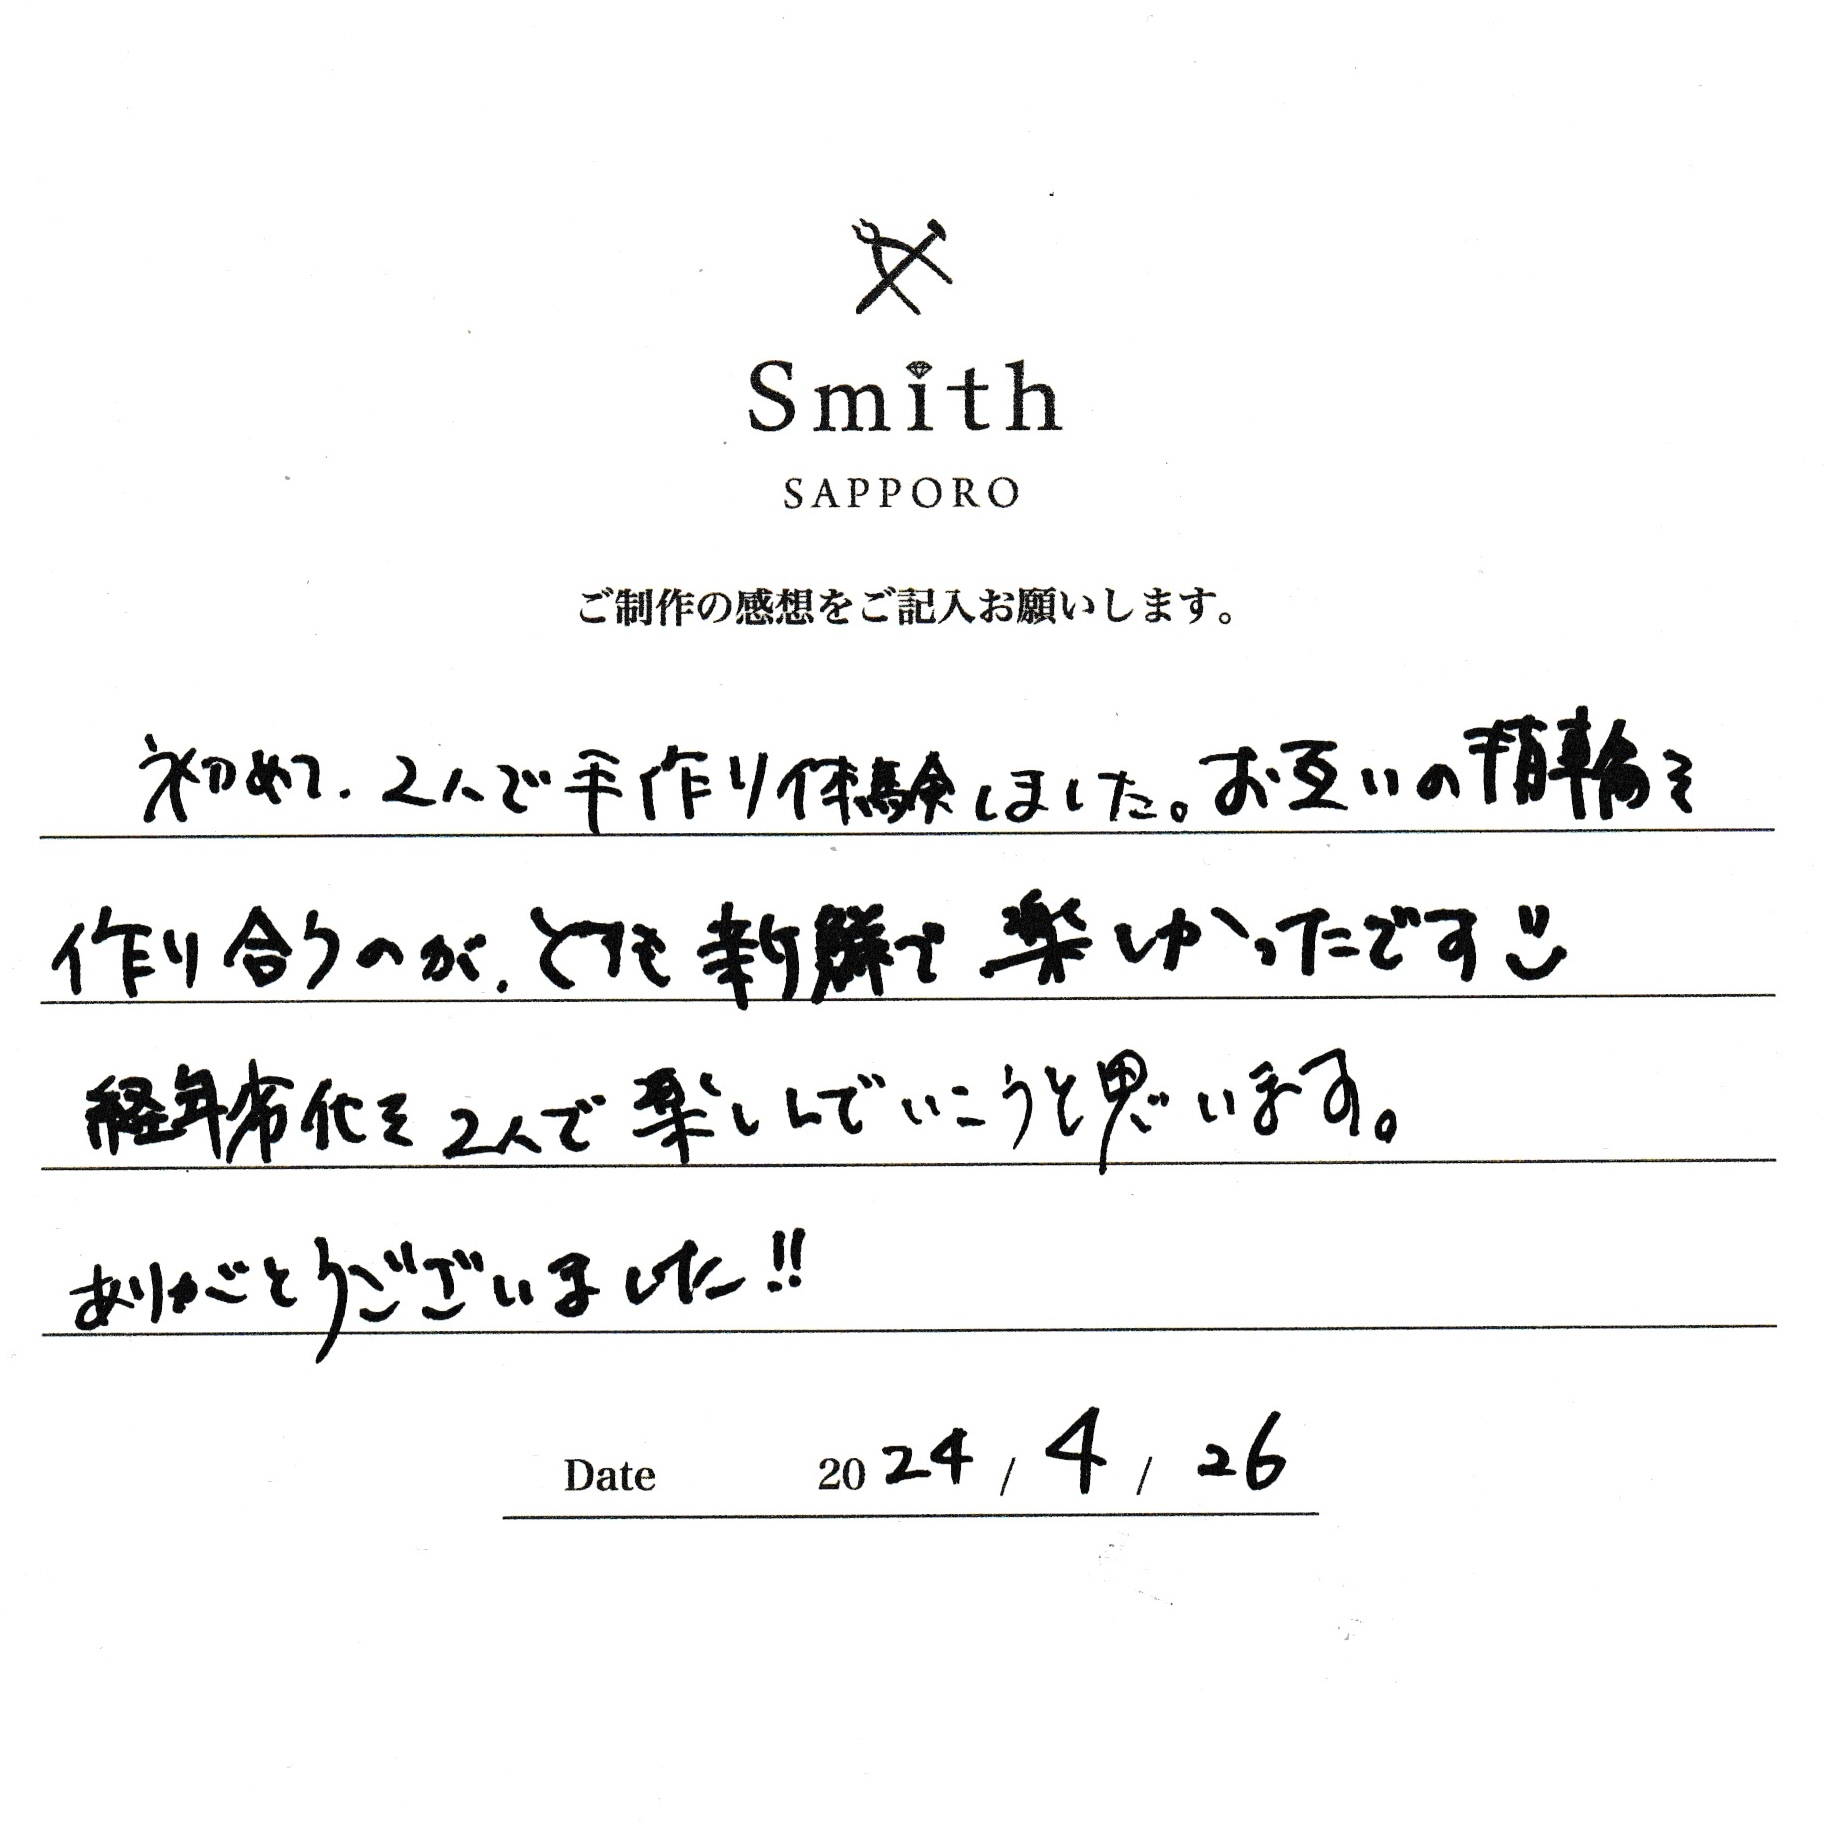 Smith
SAPPORO
ご制作の感想をご記入お願いします。
初めて、2人で手作り体験しました。お互いの指輪を
作り合うのが、とても新鮮で楽しかったです
経年常化を2人で楽しんでいこうと思います。
ありがとうございました!!
Date 2024 / 4 / 26